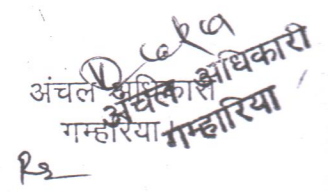 अंचल अधिकारी
गम्हारिया
अंचल अधिकारी
गम्हारिया